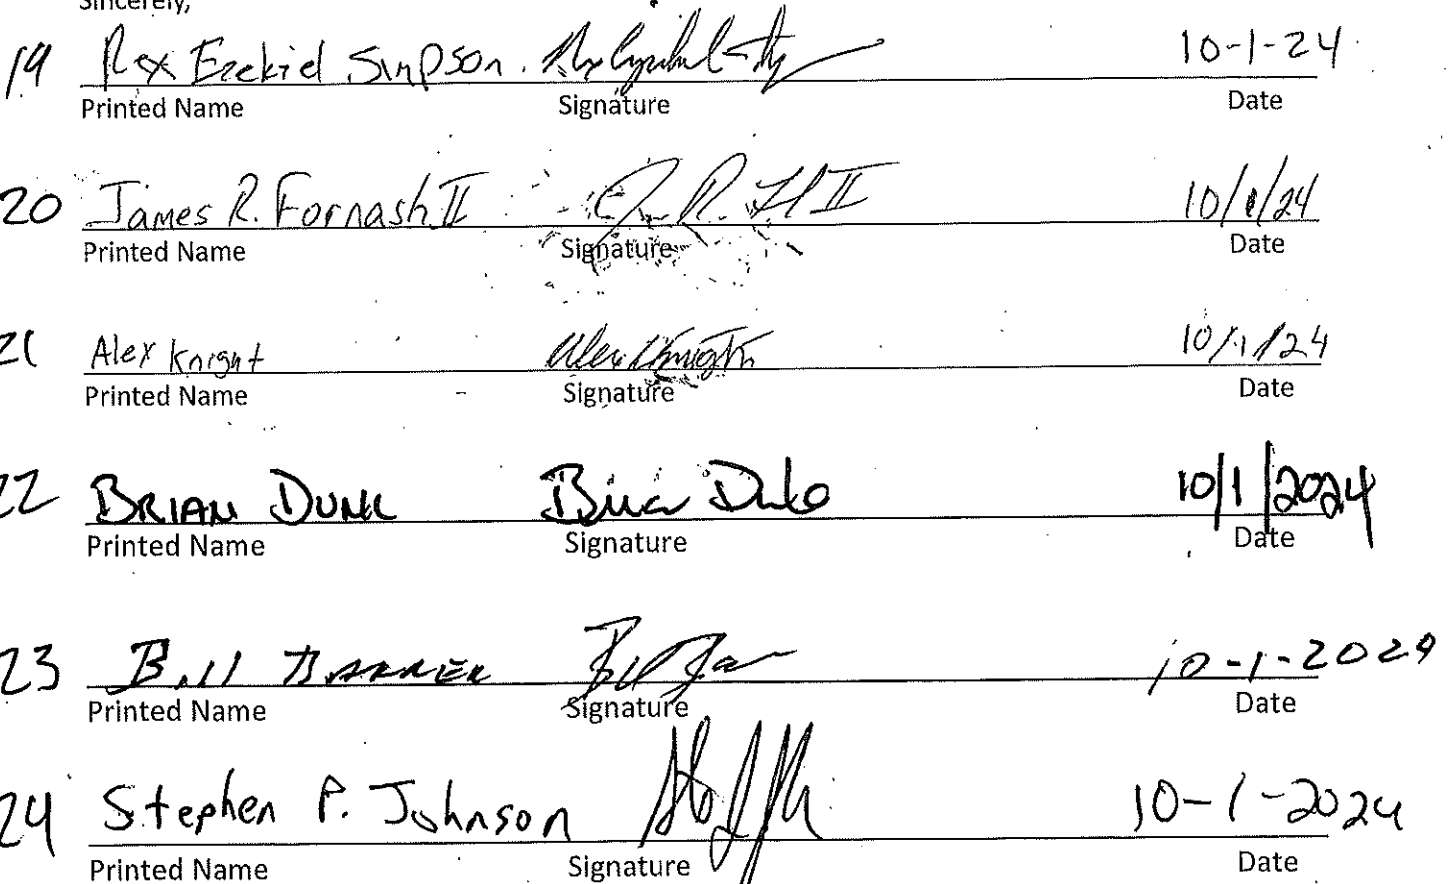 Sincerely,
19 Rex Ezekiel Simpson 10-1-24
Printed Name Signature Date
20 James R. Fornash II J. R. II 10/1/24
Printed Name Signature Date
21 Alex Knight Alex Knight 10/1/24
Printed Name Signature Date
22 BRIAN DUNK 10/1/2024
Printed Name Signature Date
23 Bill BARKER 10-1-2024
Printed Name Signature Date
24 Stephen P. Johnson 10-1-2024
Printed Name Signature Date